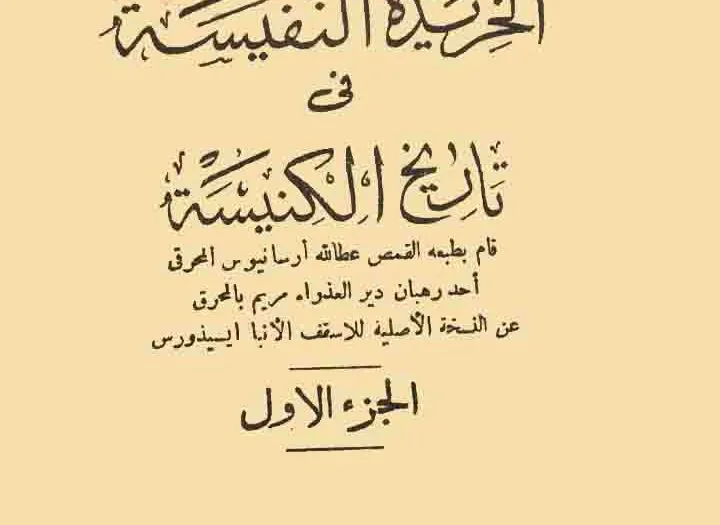 الخريدة النفيسة
فى
تاريخ الكنيسة
قام بطبعه القمص عطاالله أرسانيوس المحرقى
أحد رهبان دير العذراء مريم بالمحرق
عن النسخة الأصلية للاسقف الأنبا ايسيذورس
الجزء الاول